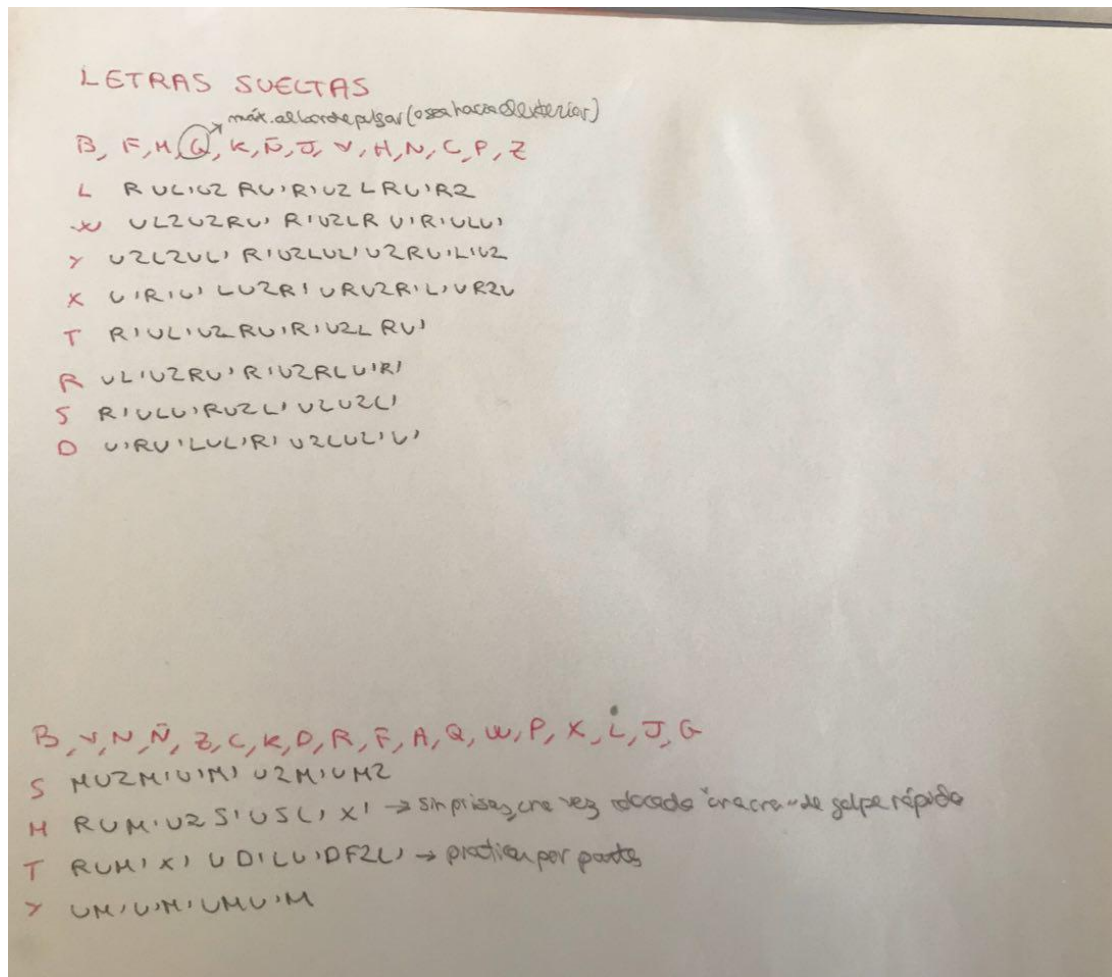 LETRAS SUELTAS
máx. al borde pulsar (o sea hacia el exterior)
B, F, M, G, K, Ñ, J, V, H, N, C, P, Z
L R UL'U2 RU'R'U2 LRU'R2
W UL2U2RU' R'U2LR U'R'ULU'
Y U2L2UL' R'U2LU2'U2RU'L'U2
X U'R'U' LU2R' URU2R'L'UR2U
T R'UL'U2 RU'R'U2L RU'
R UL'U2RU' R'U2RLU'R'
S R'ULU'RU2L' U2U2L'
D U'RU'LUL'R' U2LU2'U'
B, V, N, Ñ, Z, C, K, D, R, F, A, Q, W, P, X, L, J, G
S MU2M'U'M' U2M'UM2
H RUM'U2 S'USL'X' → sin prisas, una vez colocado "cracra" de golpe rápido
T RUM'X' UD'LU'DF2L' → practicar por partes
Y UM'U'M'UMU'M